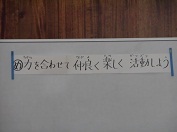 力を合わせて 仲良く 楽しく 活動しよう